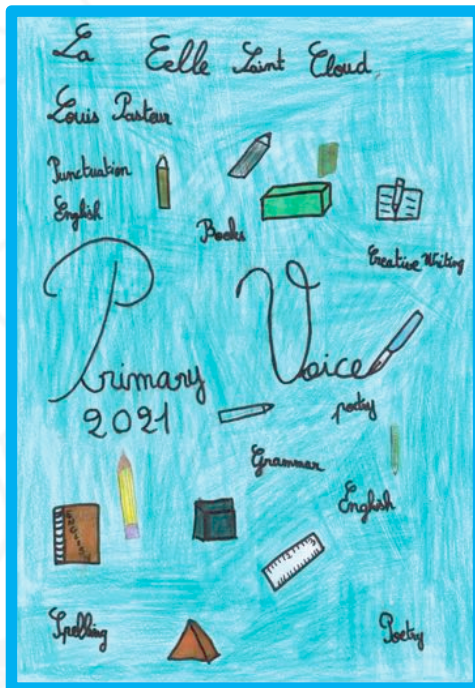 La Celle Saint Cloud
Louis Pasteur
Punctuation
English
Books
Creative Writing
Primary Voice
2021
poetry
Grammar
English
ENGLISH
Spelling
Poetry